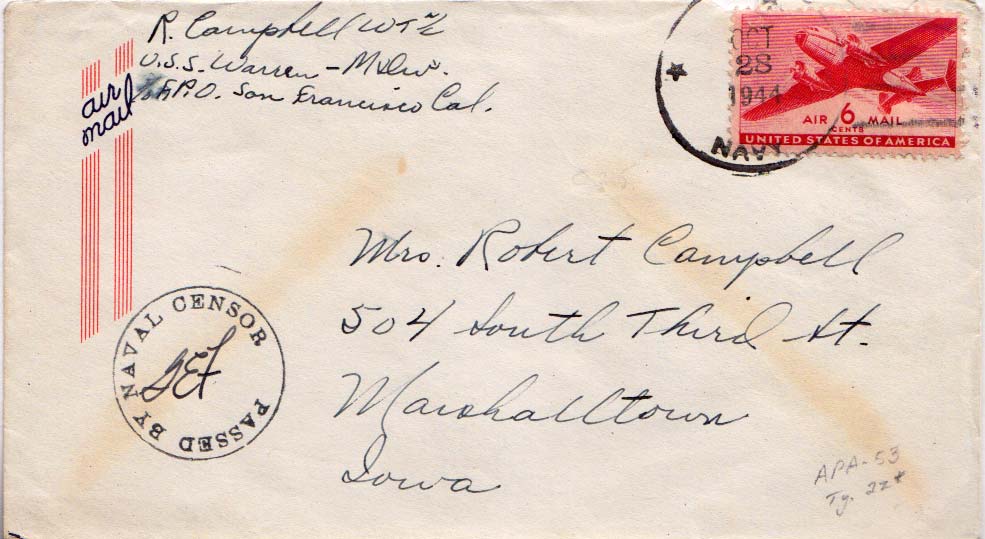 R. Campbell WT 2/c
U.S.S. Warren - M Div.
c/o F.P.O. San Francisco Cal.
air
mail
OCT
28
1944
NAVY
AIR 6 MAIL
CENTS
UNITED STATES OF AMERICA
Mrs. Robert Campbell
504 South Third St.
Marshalltown
Iowa
PASSED BY NAVAL CENSOR
APA-53